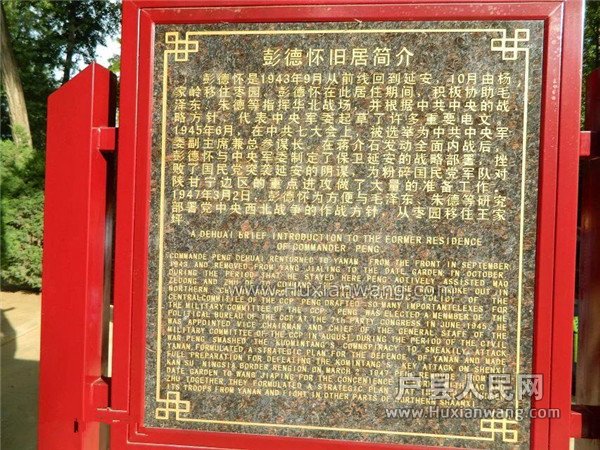 彭德怀旧居简介
彭德怀是1943年9月从前线回到延安，10月由杨
家岭移住枣园。彭德怀在此居住期间，积极协助毛
泽东、朱德等指挥华北战场，并根据中共中央的战
略方针，代表中央军委起草了许多重要电文。
1945年6月，在中共七大会上，被选举为中共中央军
委副主席兼总参谋长。在蒋介石发动全面内战后，
彭德怀与中央军委制定了保卫延安的战略部署，挫
败了国民党突袭延安的阴谋，为粉碎国民党军队对
陕甘宁边区的重点进攻做了大量的准备工作。
1947年3月2日，彭德怀为方便与毛泽东、朱德等研究
部署党中央西北战争的作战方针，从枣园移往王家
坪。
A DEHUAI BRIEF INTRODUCTION TO THE FORMER RESIDENCE
OF COMMANDER PENG
COMMANDE PENG DEHUAI RENTURNED TO YANAN FROM THE FRONT IN SEPTEMBER
1943 AND REMOVED FROM YANG JIALING TO THE DATE GARDEN IN OCTOBER
DURING THE PERIOD THAT HE STAYED HERE PENG ACTIVELY ASSISTED MAO
ZEDONG AND ZHU DE
NORTHERN
CENTRALCOMMITEE OF THE CCP PENG DRAFTED SO MANY IMPORTANTELEXES FOR
THE MILITARY COMMITEE OF THE CCP PENG HAS ELECTED A MEMBER OF THE
POLITICAL BUREAU OF THE CCP AT THE 7TH PARTY CONGRESS IN JUNE 1945 HE
WAS APPOINTED VICE CHAIRMAN AND CHIEF OF THE GENERAL STAFF OF THE
MILITARY COMMITTEE OF THE CCP IN AUGUST DURING THE PERIOD OF THE CIVIL
WAR PENG SMASHED THE KUOMINTANG'S CONSPIRACY TO SNEAKLY ATTACK
YANAN FORMULATED A STRATEGIC PLAN FOR THE DEFENCE OF YANAN AND MADE
FULL PREPARATION FOR DEFEATING THE KOMINTANG'S KEY ATTACK ON SHENXI
GAN SU NINGSIA BORDER RENGION ON MARCH 2 1947
DATE GARDEN TO WANG JIAPING FOR THE CONCENTENCE
ZHU TOGETHER THEY FORMULATED A STRATEGIC PLAN
ITS TROOPS FROM YANAN AND FIGHT IN OTHER PARTS OF NORTHERN SHAANXI
www.huxianwang.com
户县人民网
www.Huxianwang.com